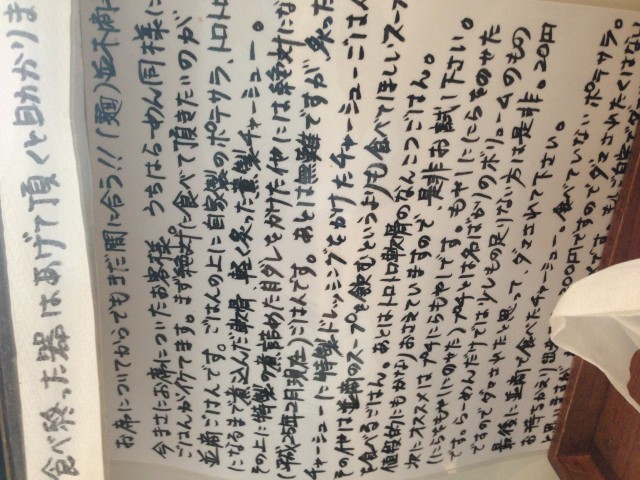 食べ終った器はあげて頂くと助かりま
お席についてからでもまだ間に合う!!(麺)並不満に
今まさにお席についたお客様、うちはらーめん同様に
ごはんがイケてます。まず絶対に食べて頂きたいのが
並商ごはんです。ごはんの上に自家製のポテサラ、トロトロ
になるまで煮込んだ軟骨、軽く炙った燻製チャーシュー。
その上に特製の煮詰めた甘ダレをかけた他には絶対にな
(平成25年2月現在)ごはんです。あとは無難ですが、炙った
チャーシューに特製ドレッシングをかけたチャーシューごはん
その他は並商のスープを飲むというよりも食べてほしいスープ
を食べるごはん。あとはトロトロ軟骨のなんこつごはん。
値段的にもかなりおさえていますので、是非お試し下さい。
次にオススメはプチにらもやしです。もやしににらをのせた
(にらをもやしにのせた)プチとは名ばかりのボリュームのもの
です。らーめんだけでは少しもの足りない方は是非。20円
ですのでダマされたと思って、ダマされて下さい。
最後に並商で食べたチャーシュー。食べていないポテサラ。
お持ちかえり出来
00円ですのでダマされたくはない
と思いますが